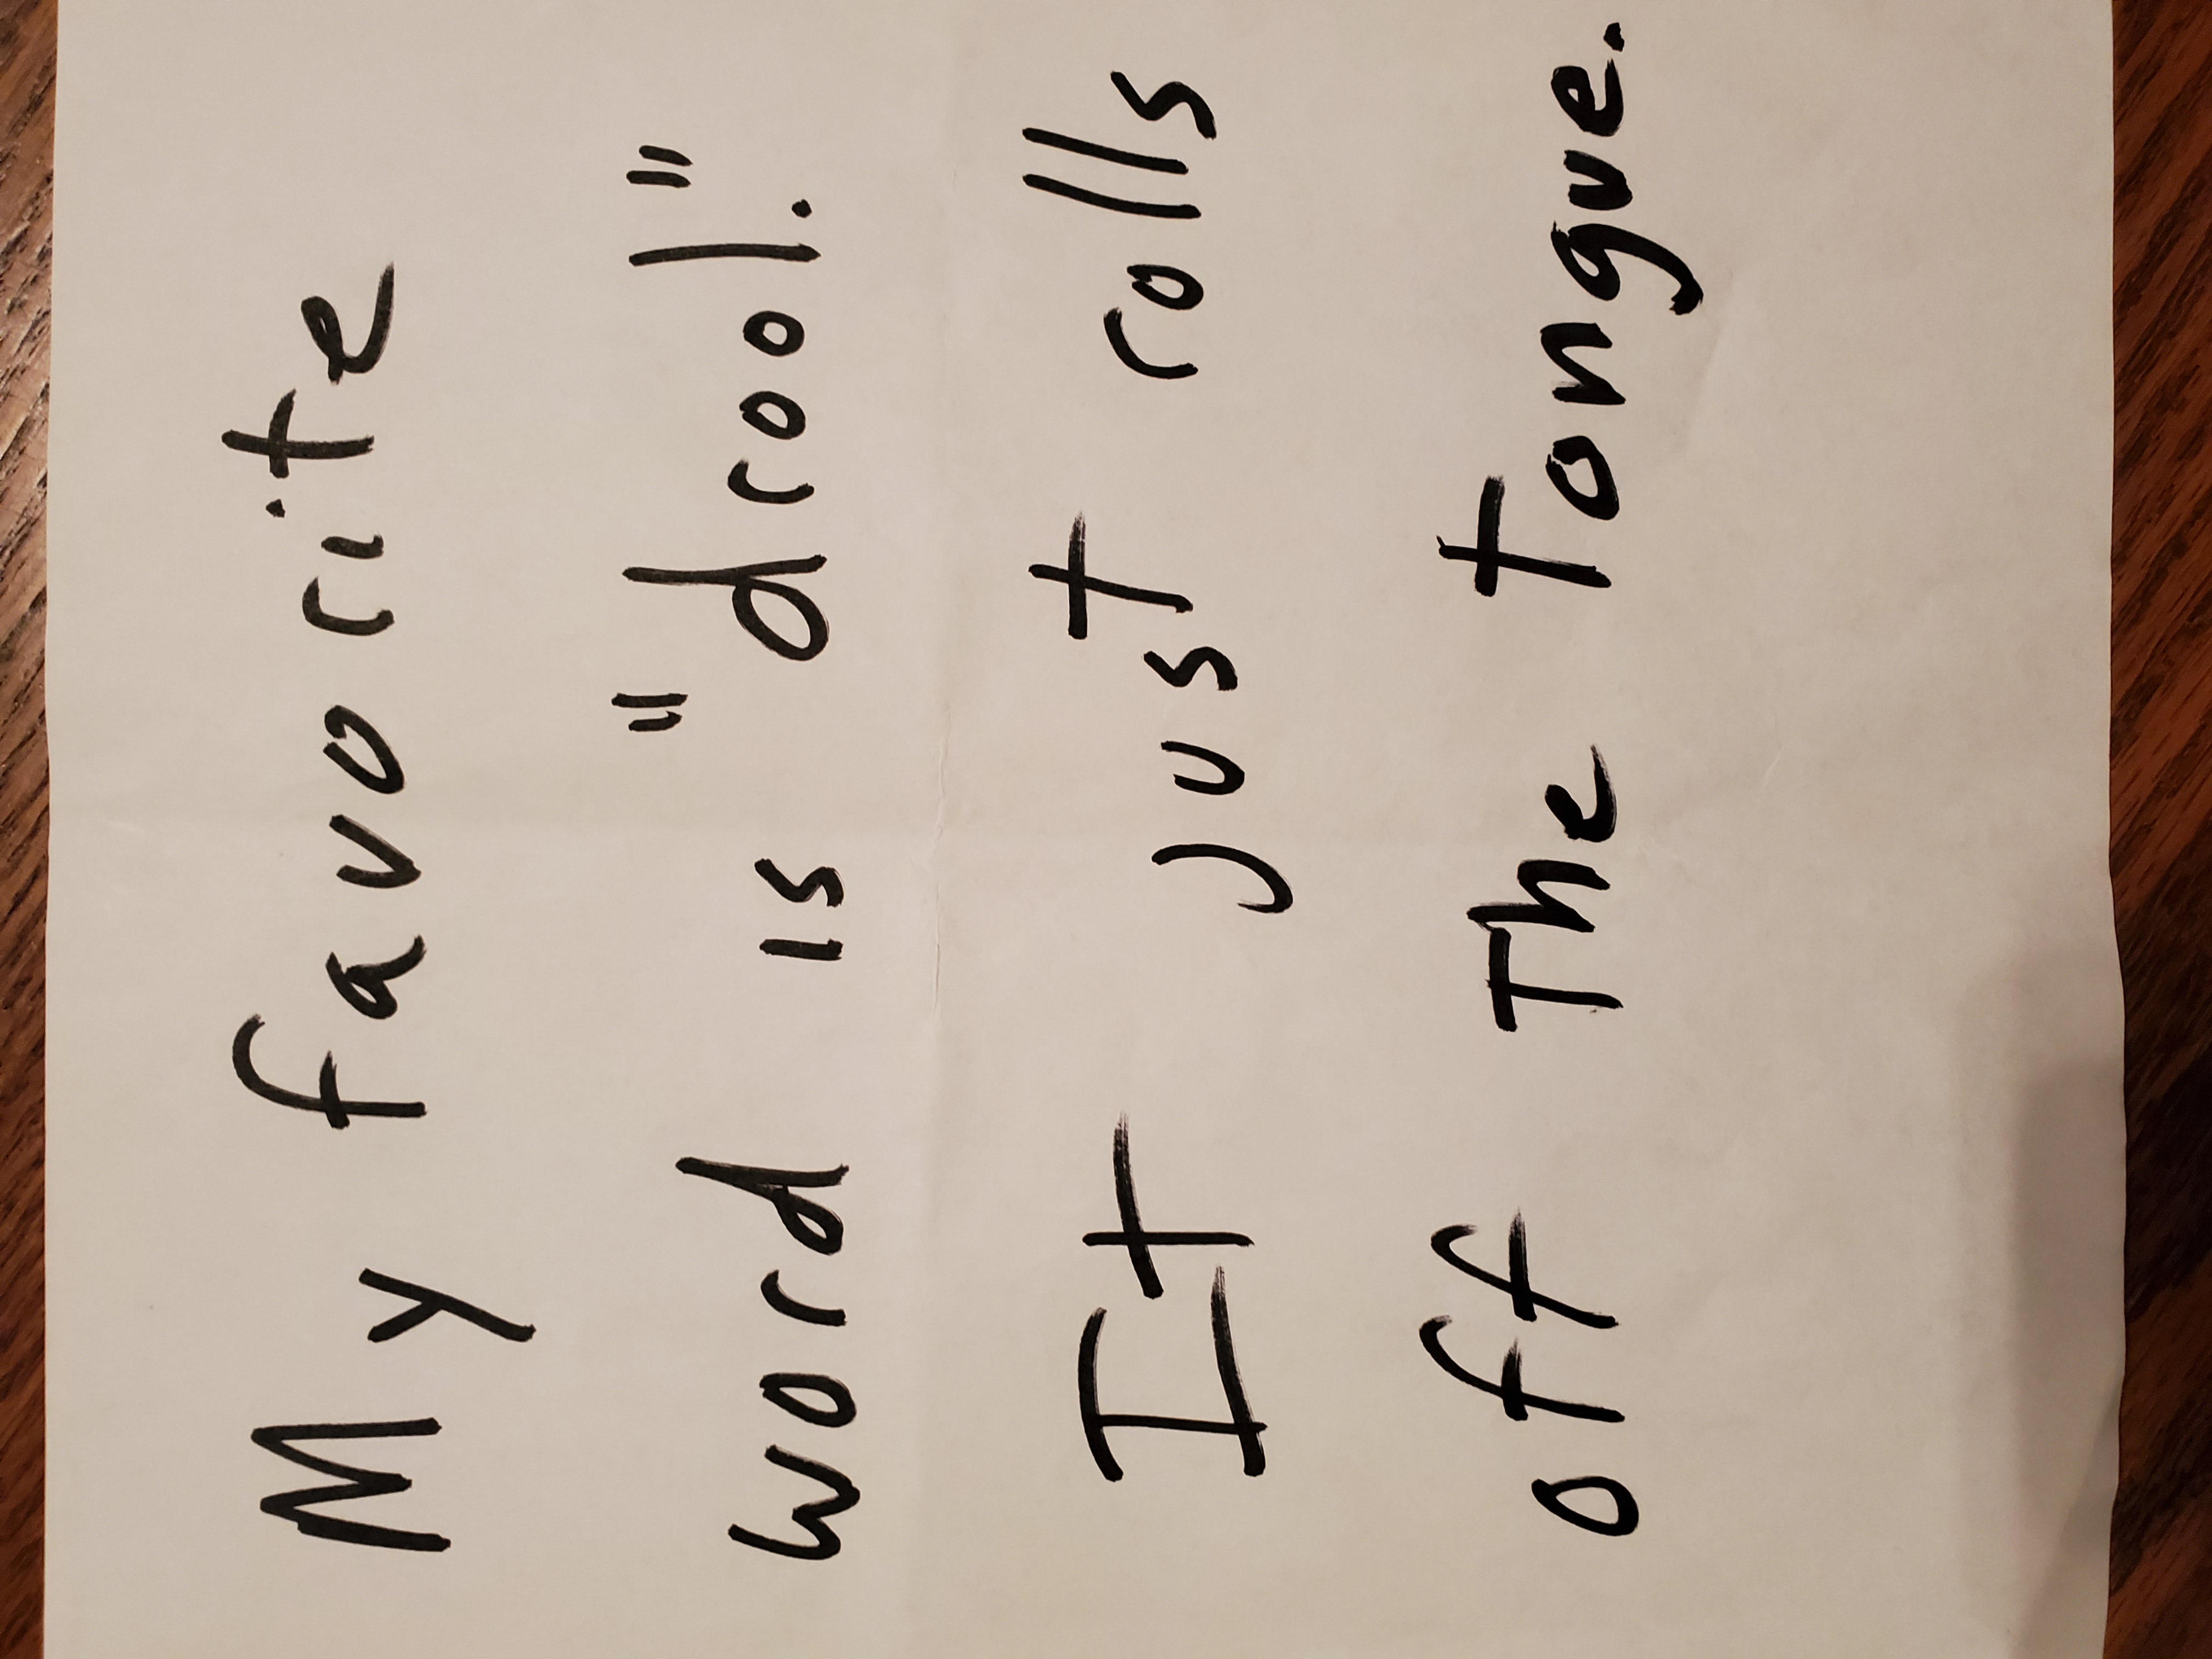 My favorite
word is "drool."
It just rolls
off The tongue.